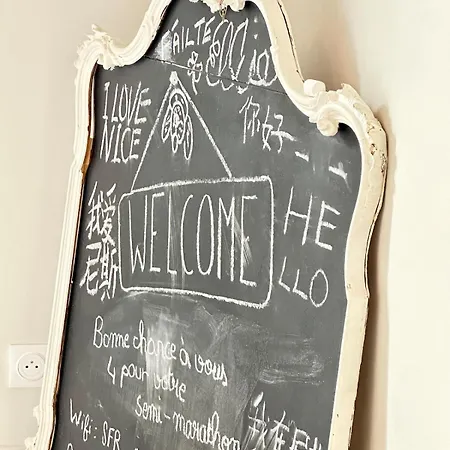 FAILTE
I LOVE
NICE
你好
我爱
尼斯
WELCOME
HE
LLO
Bonne chance à vous
4 pour votre
semi-marathon
Wifi: SFR
我在尼斯